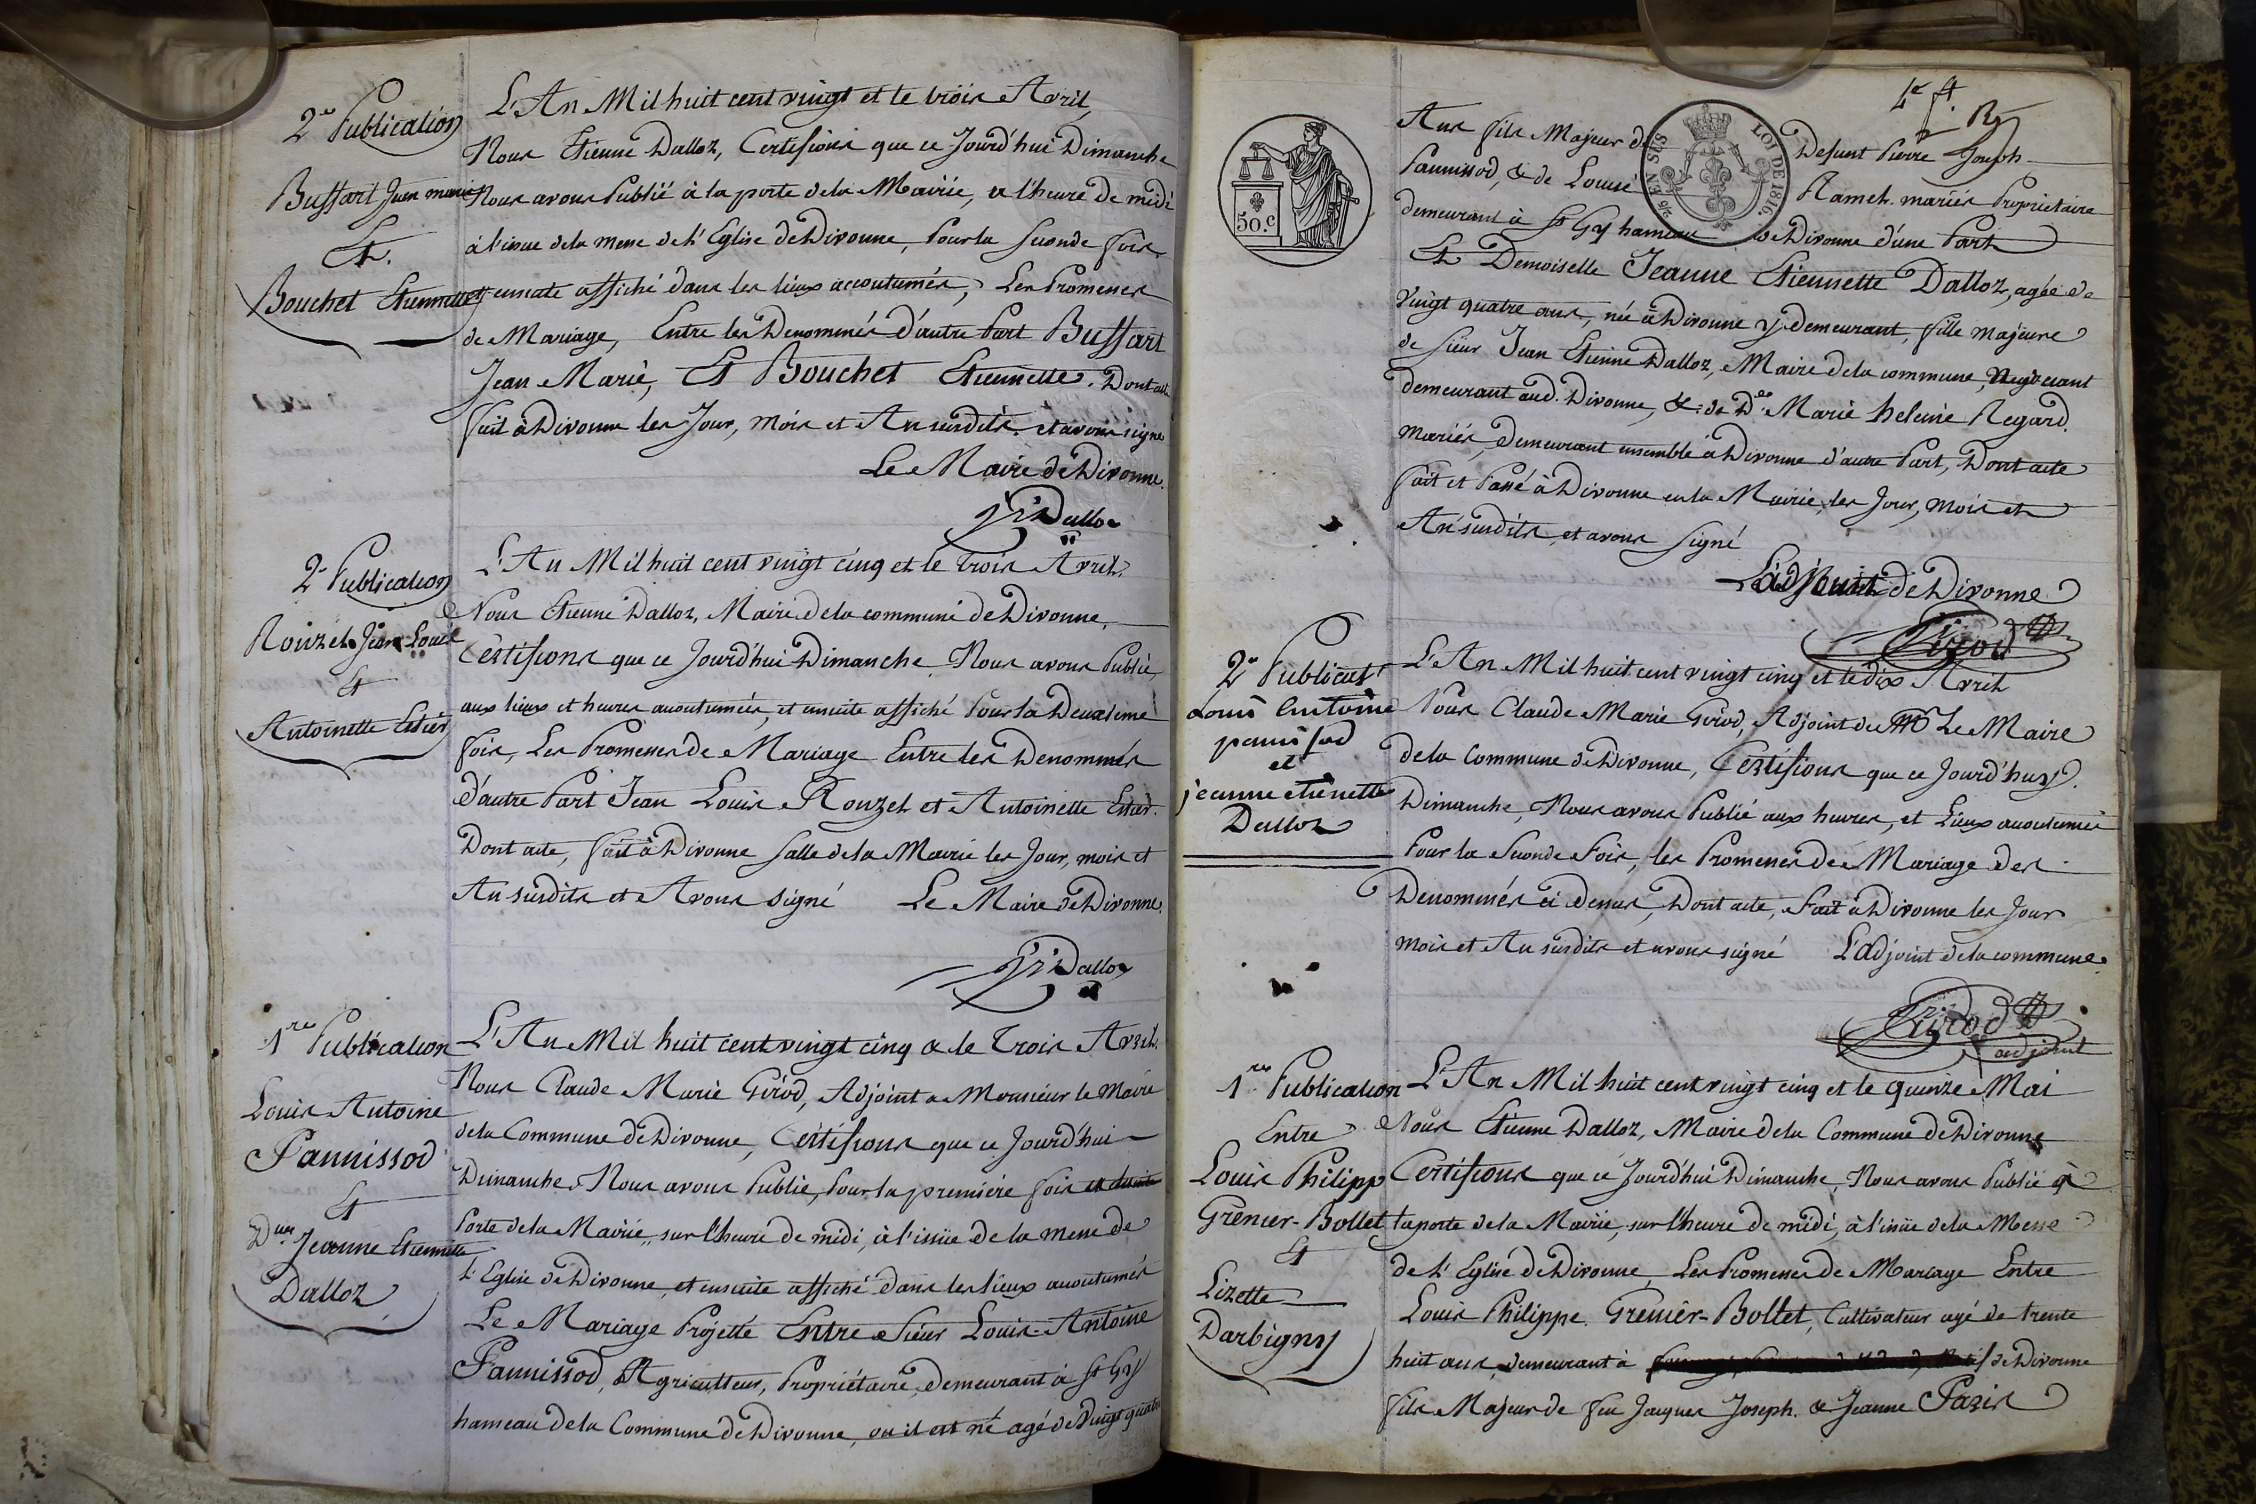 2e Publication
Buffart Jean marie
Et
Bouchet Etiennette
L'An Mil huit cent vingt et le trois Avril
Nous Etienne Dalloz, Certifions que ce Jourd'hui Dimanche
Nous avons Publié à la porte de la Mairie, a l'heure de midi
à l'issue de la messe de l'Eglise de Divonne, Pour la seconde fois
ensuite affiché dans les lieux accoutumés, Les Promesses
de Mariage, Entre les Denommés d'autre Part Buffart
Jean Marie, Et Bouchet Etiennette. Dont acte
fait à Divonne les Jour, mois et An susdits. et avons signé
Le Maire de Divonne.
Dalloz
2e Publication
Rouzet Jean Louis
Et
Antoinette
L'An Mil huit cent vingt cinq et le trois Avril.
Nous Etienne Dalloz, Maire de la commune de Divonne,
Certifions que ce Jourd'hui Dimanche Nous avons Publié,
aux lieux et heures accoutumés, et ensuite affiché Pour la Deuxieme
fois, Les Promesses de Mariage Entre les Denommés
d'autre Part Jean Louis Rouzet et Antoinette
Dont acte, fait à Divonne salle de la Mairie les Jour, mois et
An susdits et Avons signé Le Maire de Divonne.
Dalloz
1re Publication
Louis Antoine
Pannissod
Et
Dlle Jeanne Etiennette
Dalloz
L'An Mil huit cent vingt cinq & le Trois Avril.
Nous Claude Marie Girod, Adjoint a Monsieur le Maire
de la Commune de Divonne, Certifions que ce Jourd'hui
Dimanche, Nous avons Publié, Pour la premiere fois
Porte de la Mairie, sur l'heure de midi, à l'issüe de la messe de
l'Eglise de Divonne, et ensuite affiché dans les lieux accoutumés
Le Mariage Projetté Entre Sieur Louis Antoine
Pannissod, Agriculteur, Propriétaire, demeurant à St Gy
hameau de la Commune de Divonne, ou il est né agé de Vingt quatre
4e f.
50.c
EN SUS
LOI DE 1816.
Ans fils Majeur de Defunt Pierre Joseph
Pannissod, & de Louise Ramel. mariés Propriétaire
demeurant à St Gy hameau de Divonne d'une Part
Et Demoiselle Jeanne Etiennette Dalloz, agée de
vingt quatre ans, née à Divonne y demeurant, fille majeure
de sieur Jean Etienne Dalloz, Maire de la commune, Négociant
demeurant aud. Divonne, & de De. Marie heleine Regard.
mariés, demeurant ensemble à Divonne d'autre Part, Dont acte
fait et Passé à Divonne en la Mairie, les Jour, mois et
An susdits, et avons signé
L'adjoint de Divonne
Girod
2e Publicat
Louis Antoine
panissod
et
jeanne etienette
Dalloz
L'An Mil huit cent vingt cinq et le dix Avril
Nous Claude Marie Girod, Adjoint de Mr Le Maire
de la Commune de Divonne, Certifions que ce Jourd'huy
Dimanche, Nous avons Publié aux heures, et Lieux accoutumés
Pour la Seconde Fois, les Promesses de Mariage des
Denommés ci dessus, Dont acte, Fait à Divonne les Jour
mois et An susdits et avons signé L'adjoint de la commune
Girod
adjoint
1re Publication
Entre
Louis Philipp
Grenier-Bollet
Et
Lizette
Darbigny
L'An Mil huit cent vingt cinq et le quinze Mai
Nous Etienne Dalloz, Maire de la Commune de Divonne
Certifions que ce Jourd'hui Dimanche, Nous avons Publié à
la porte de la Mairie, sur l'heure de midi, à l'issüe de la Messe
de l'Eglise de Divonne, Les Promesses de Mariage Entre
Louis Philippe Grenier-Bollet, Cultivateur agé de trente
huit ans, demeurant à de Divonne
fils Majeur de feu Jacques Joseph. & Jeanne Pazis